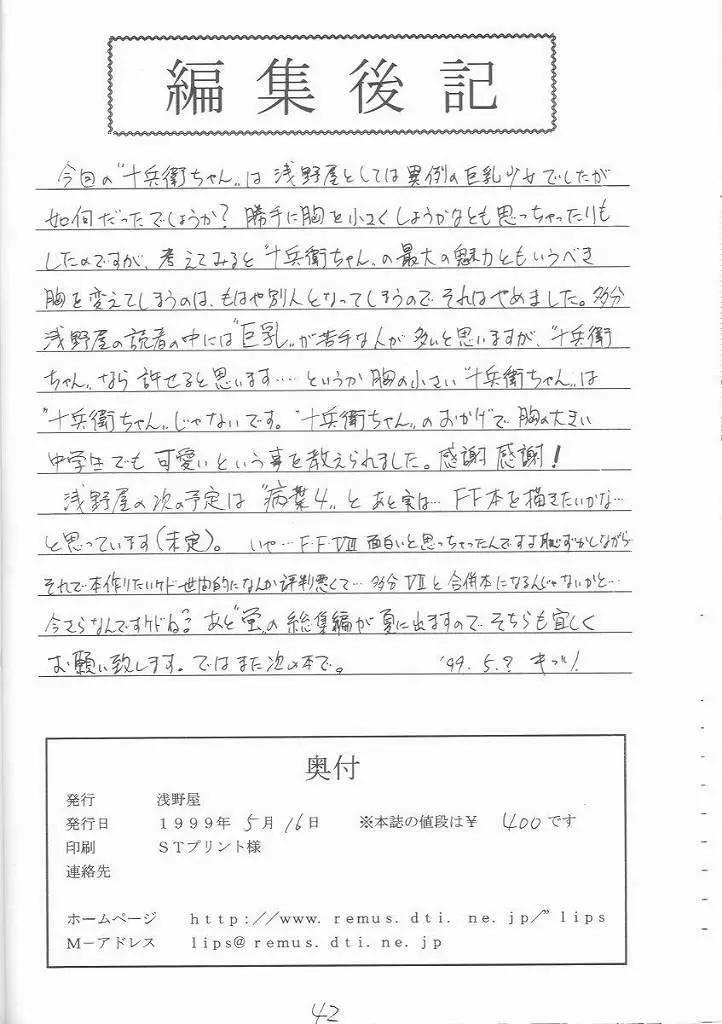 編集後記
今回の"十兵衛ちゃん"は浅野屋としては異例の巨乳少女でしたが
如何だったでしょうか？勝手に胸を小さくしようかなとも思っちゃったりも
したのですが、考えてみると"十兵衛ちゃん"の最大の魅力ともいうべき
胸を変えてしまうのは、もはや別人となってしまうのでそれはやめました。多分
浅野屋の読者の中には"巨乳"が苦手な人が多いと思いますが、"十兵衛
ちゃん"なら許せると思います‥‥というか胸の小さい"十兵衛ちゃん"は
"十兵衛ちゃん"じゃないです。"十兵衛ちゃん"のおかげで胸の大きい
中学生でも可愛いという事を教えられました。感謝感謝！
浅野屋の次の予定は"病葉4"と あと実は… FF本を描きたいかな…
と思っています(未定)。 いや…F・FⅧ 面白いと思っちゃったんですよ恥ずかしながら
それで本作りたいケド世間的になんか評判悪くて… 多分Ⅶと合併本になるんじゃないかと…
今さらなんですケドね？ あと"蛍"の総集編が夏に出ますのでそちらも宜しく
お願い致します。ではまた次の本で。 '99.5.?
奥付
発行 浅野屋
発行日 1999年 5月 16日 ※本誌の値段は￥ 400です
印刷 STプリント様
連絡先
ホームページ http://www.remus.dti.ne.jp/~lips
M－アドレス lips@remus.dti.ne.jp
42